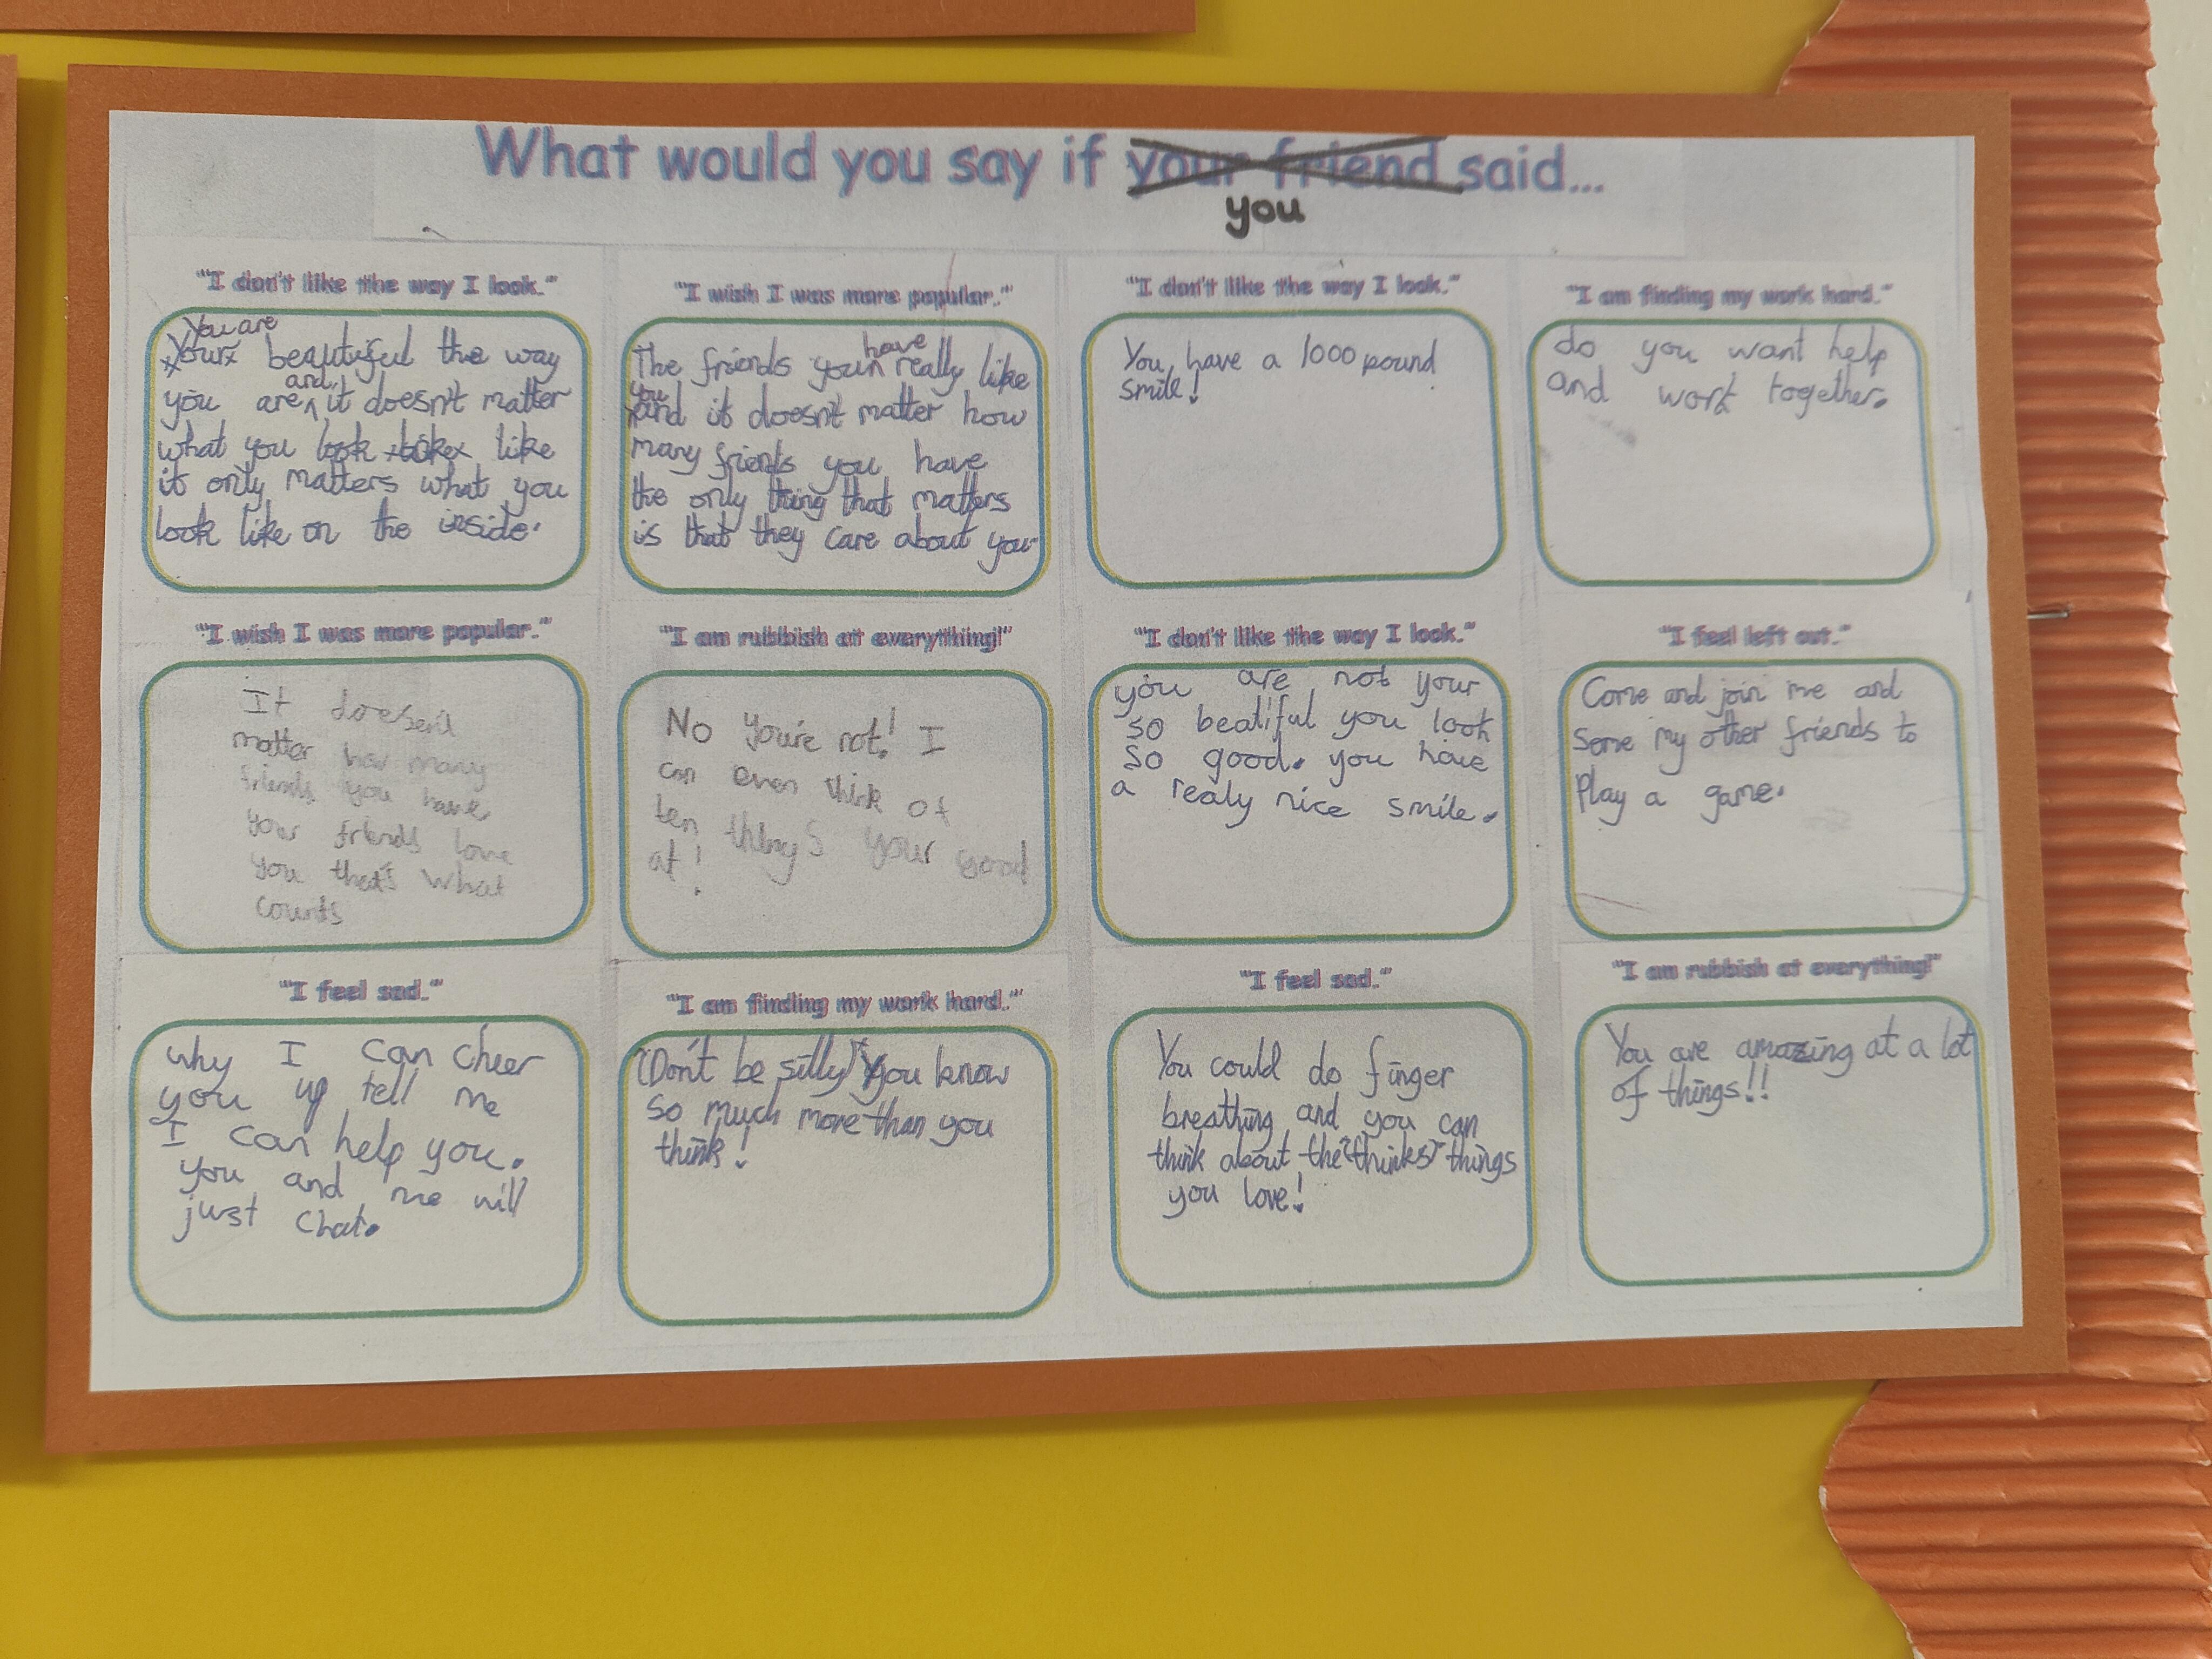 What would you say if your friend said...
you
"I don't like the way I look."
You are
Your beautiful the way
and
you are it doesn't matter
what you look like like
it only matters what you
look like on the inside.
"I wish I was more popular."
have
The friends you really like
you
and it doesn't matter how
many friends you have
the only thing that matters
is that they care about you
"I don't like the way I look."
You have a 1000 pound
smile!
"I am finding my work hard."
do you want help
and work together.
"I wish I was more popular."
It doesen't
matter how many
friends you have
your friends love
you that's what
counts
"I am rubbish at everything!"
No you're not! I
can even think of
ten things your good
at!
"I don't like the way I look."
you are not your
so beatiful you look
so good. you have
a realy nice smile.
"I feel left out."
Come and join me and
some my other friends to
Play a game.
"I feel sad."
why I can cheer
you up tell me
I can help you.
you and me will
just chat.
"I am finding my work hard."
(Don't be silly) You know
so much more than you
think!
"I feel sad."
You could do finger
breathing and you can
think about the (thinks) things
you love!
"I am rubbish at everything!"
You are amazing at a lot
of things!!